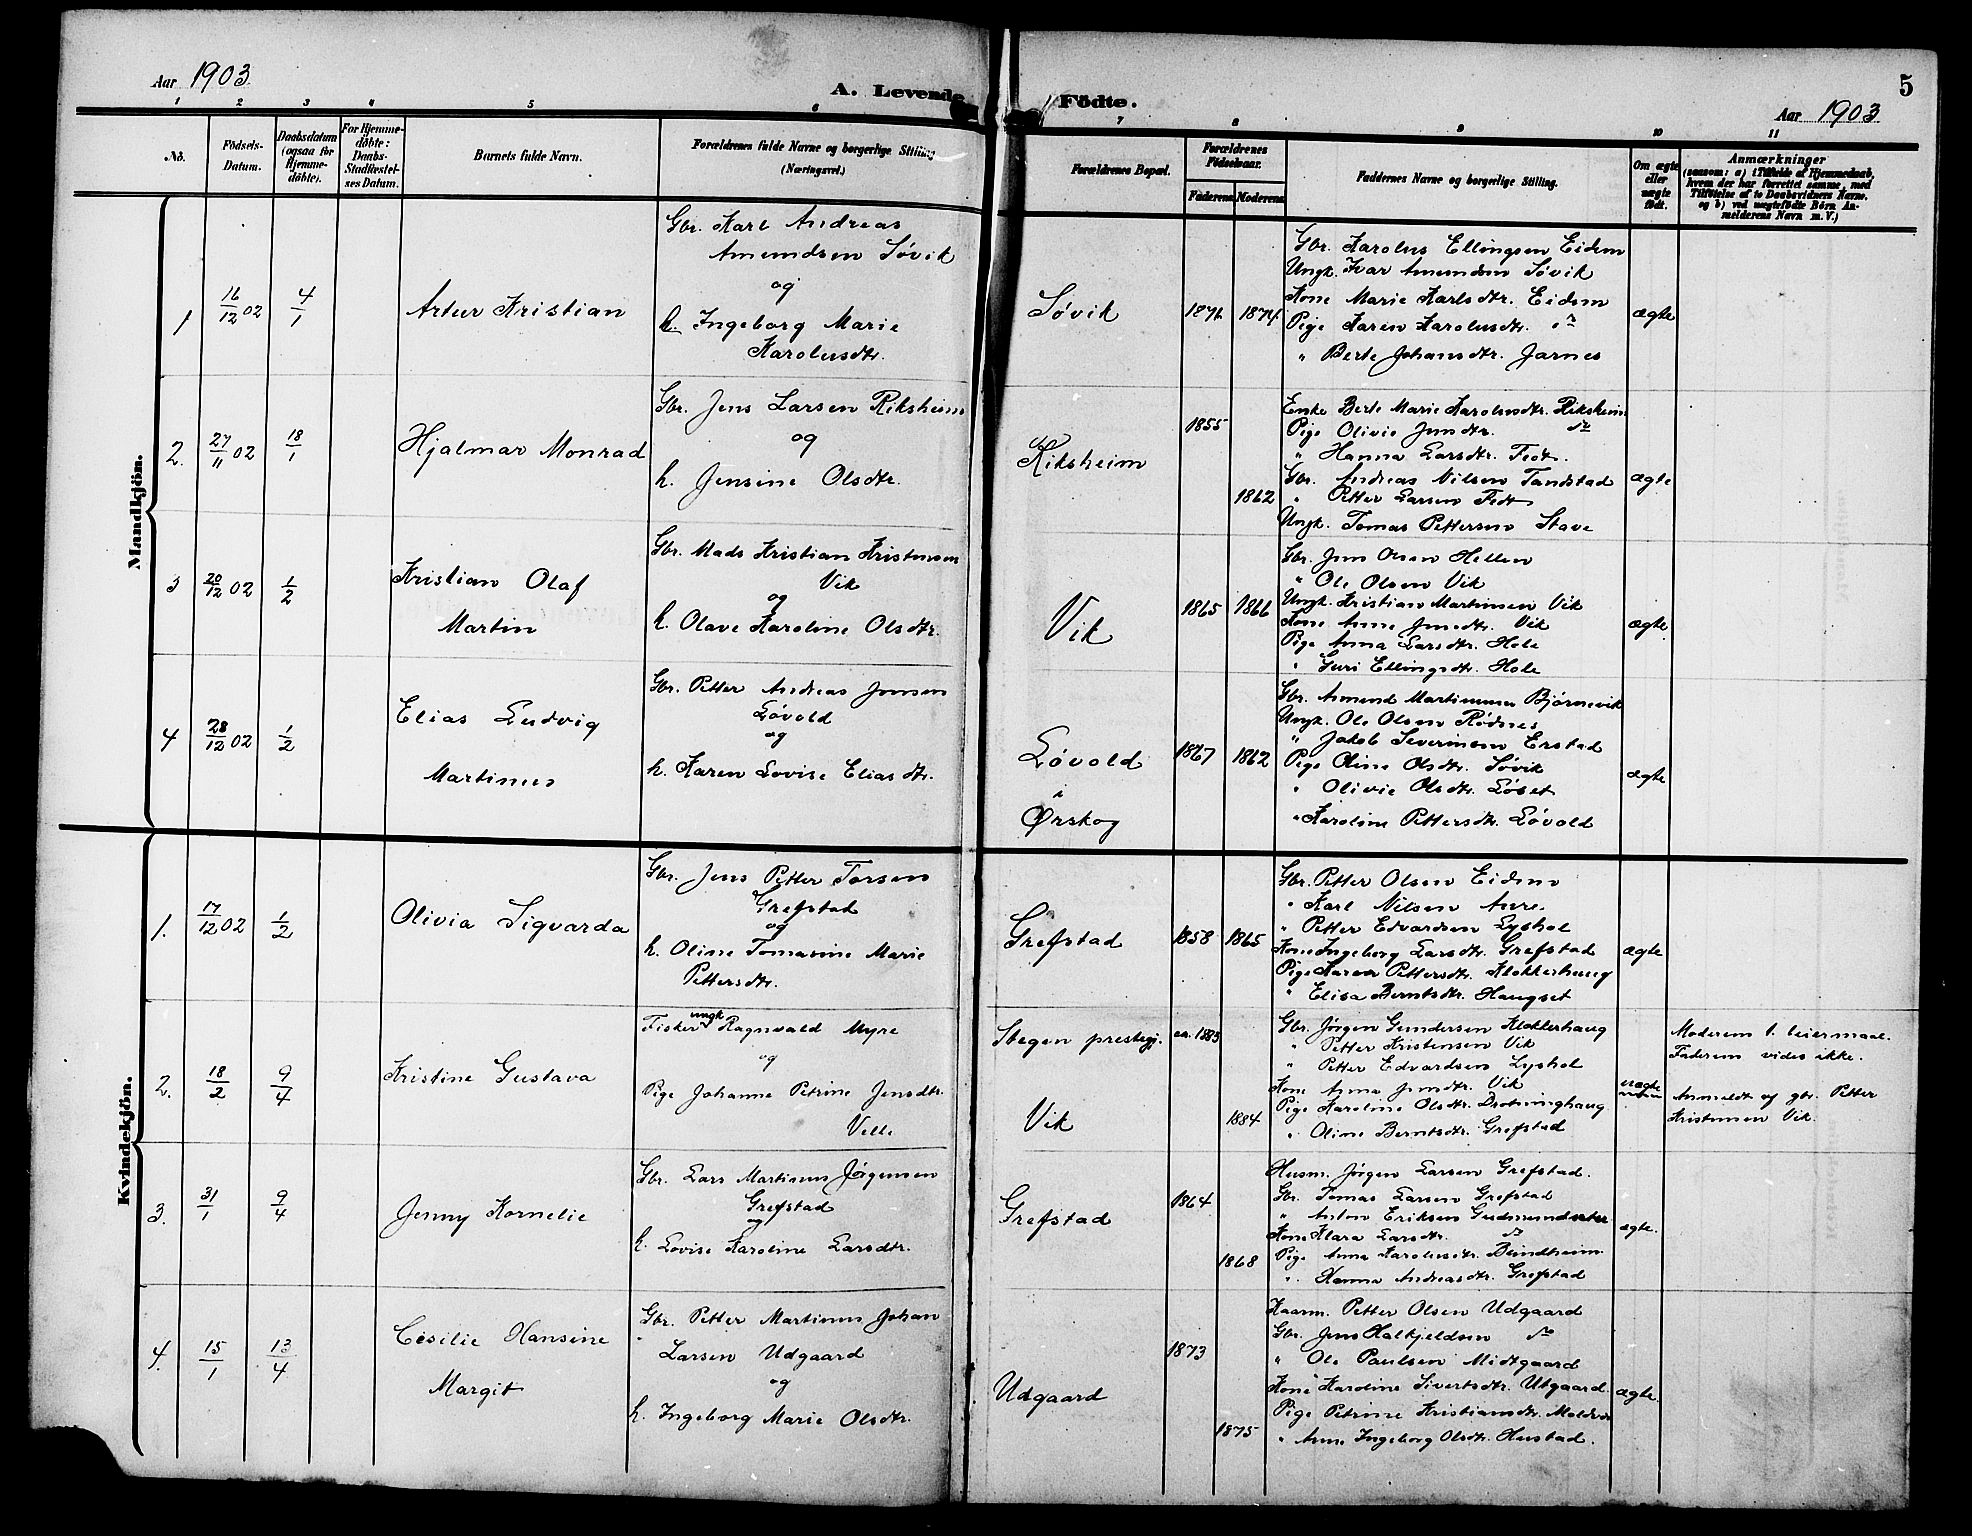 Aar 1903
A. Levende Födte.
5
Aar 1903
1 2 3 4 5 6 7 8 9 10 11
No.
Födsels-Datum.
Daabsdatum (ogsaa for Hjemme-döbte).
For Hjemme-döbte: Daabs-Stadfæstel-ses Datum.
Barnets fulde Navn.
Forældrenes fulde Navne og borgerlige Stilling (Næringsvei.)
Forældrenes Bopæl.
Forældrenes Födselsaar.
Faderens Moderens
Faddernes Navne og borgerlige Stilling.
Om ægte eller uægte födt.
Anmærkninger
(saasom: a) i Tilfælde af Hjemmedaab,
hvem der har forrettet samme, med
Tilföielse af to Daabsvidners Navne,
og b) ved uægtefödte Börn An-
melderens Navn m. V.)
Mandkjön.
1
16/12 02
4/1
Artur Kristian
Gbr. Karl Andreas
Amundsen Søvik
og
h. Ingeborg Marie
Karolusdtr.
Søvik
1871
1874
Gbr. Karolus Ellingsen Eidem
Ungk. Ivar Amundsen Søvik
Kone Marie Karlsdtr. Eidem
Pige Karen Karolusdtr. do
" Berte Johansdtr. Jarnes
ægte
2.
27/11 02
18/1
Hjalmar Monrad
Gbr. Jens Larsen Riksheim
og
h. Jensine Olsdtr.
Riksheim
1855
1862
Enke Berte Marie Karolusdtr. Riksheim
Pige Olivie Jensdtr. do
" Hanna Larsdtr. Fedt.
Gbr. Andreas Nilsen Tandstad
" Petter Larsen Fedt
Ungk. Tomas Pettersen Stave
ægte
3
20/12 02
1/2
Kristian Olaf
Martin
Gbr. Mads Kristian Kristensen
Vik
og
h. Olave Karoline Olsdtr.
Vik
1865
1866
Gbr. Jens Olsen Hellen
" Ole Olsen Vik
Ungk. Kristian Martinsen Vik
Kone Anne Jensdtr. Vik
Pige Anna Larsdtr. Hole
" Guri Ellingsdtr. Hole
ægte
4
28/12 02
1/2
Elias Ludvig
Martinus
Gbr. Petter Andreas Jonsen
Løvold
og
h. Karen Lovise Eliasdtr.
Løvold
i
Ørskog
1867
1862
Gbr. Amund Martinussen Bjørnevik
Ungk. Ole Olsen Rødnes
" Jakob Severinsen Erstad
Pige Oline Olsdtr. Søvik
" Olivie Olsdtr. Løset
" Karoline Pettersdtr. Løvold
ægte
Kvindekjön.
1.
17/12 02
1/2
Olivia Sigvarda
Gbr. Jens Petter Torsen
Grefstad
og
h. Oline Tomasine Marie
Pettersdtr.
Grefstad
1858
1865
Gbr. Petter Olsen Eidem
" Karl Nilsen Aure
" Petter Edvardsen Lyshol
Kone Ingeborg Larsdtr. Grefstad
Pige Karen Pettersdtr. Klokkerhaug
" Elisa Berntsdtr. Haugset
ægte
2.
18/2
9/4
Kristine Gustava
Fisker ungk Ragnvald Myre
og
Pige Johanne Petrine Jensdtr.
Velle
Stegen prestegj.
Vik
ca. 1883
1884
Gbr. Jørgen Gundersen Klokkerhaug
" Petter Kristensen Vik
" Petter Edvardsen Lyshol
Kone Anna Jensdtr. Vik
Pige Karoline Olsdtr. Drotninghaug
" Oline Berntsdtr. Grefstad
uægte
Moderens 1. leiermaal.
Faderens vides ikke.
Anmeldt af gbr. Petter
Kristensen Vik.
3.
31/1
9/4
Jenny Kornelie
Gbr. Lars Martinus Jørgensen
Grefstad
og
h. Lovise Karoline Larsdtr.
Grefstad
1864
1868
Husm. Jørgen Larsen Grefstad.
Gbr. Tomas Larsen Grefstad
" Anton Eriksen Gudmundsæter
Kone Klara Larsdtr. do
Pige Anna Karolusdtr. Blindheim
" Hanna Andreasdtr. Grefstad
ægte.
4.
15/1
13/4
Cesilie Hansine
Margit
Gbr. Petter Martinus Johan
Larsen Udgaard
og
h. Ingeborg Marie Olsdtr.
Udgaard
1873
1875
Kaarm. Petter Olsen Udgaard
Gbr. Jens Halkjeldsen do
" Ole Paulsen Midtgaard
Kone Karoline Sivertsdtr. Utgaard
Pige Petrine Kristiansdtr.
" Anne Ingeborg Olsdtr. Hustad.
ægte.